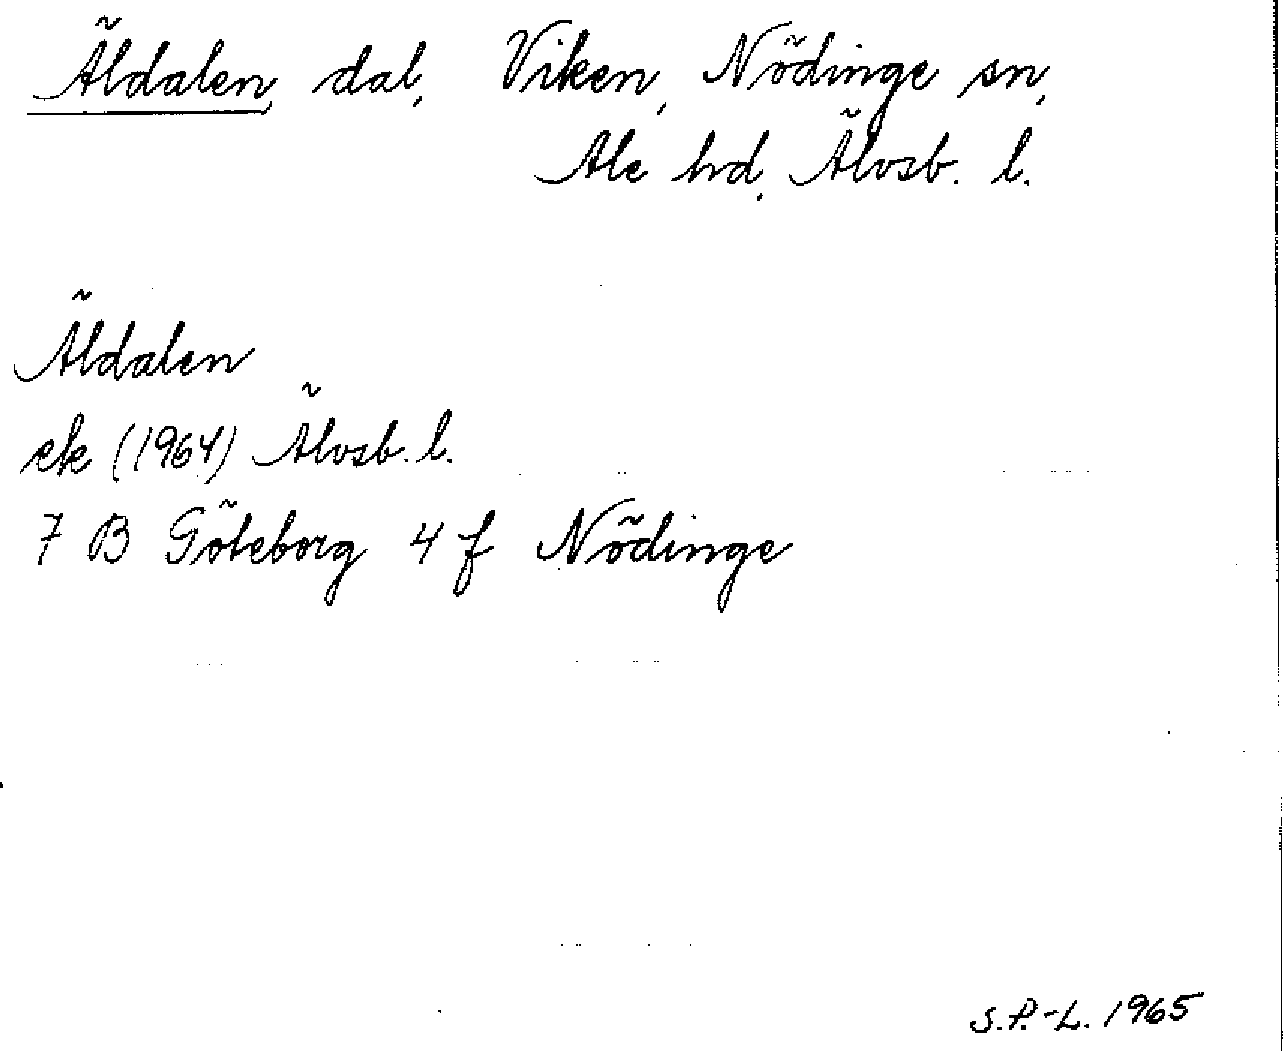 Äldalen, dal, Viken, Nödinge sn,
Ale hd, Älvsb. l.
Äldalen
ek (1964) Älvsb. l.
7 B Göteborg 4 f Nödinge
S.P.-L. 1965